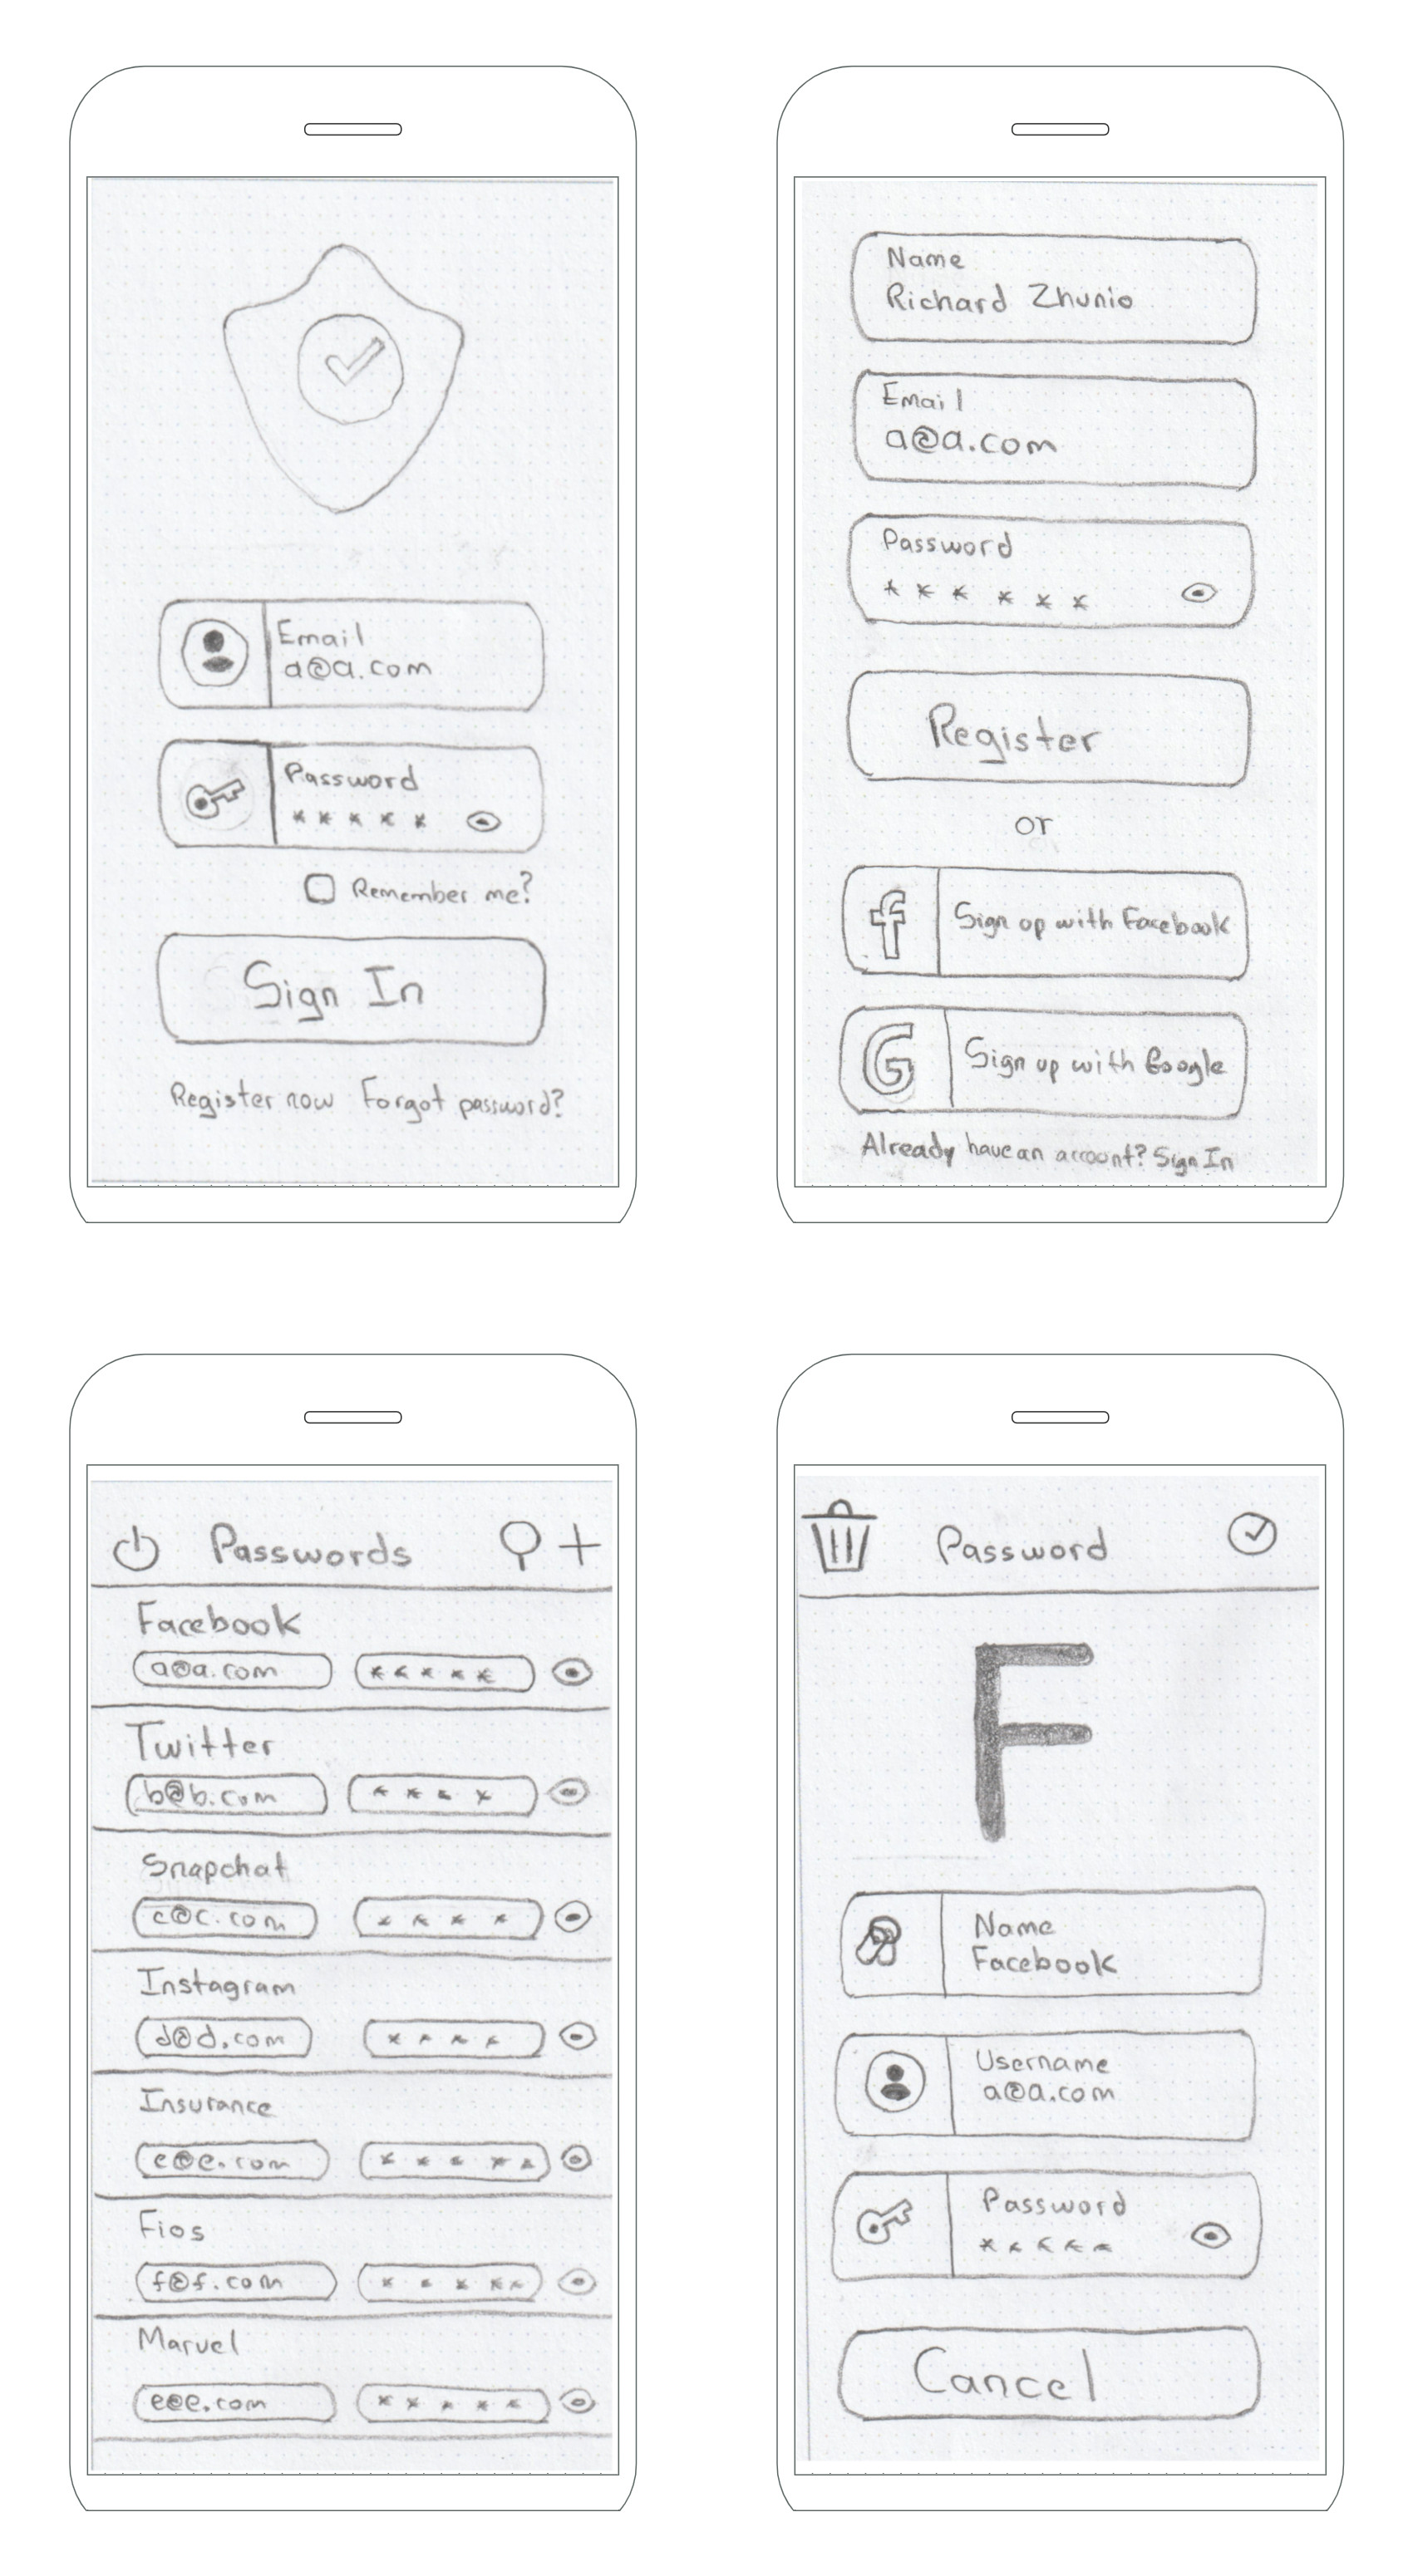 Email
a@a.com
Password
* * * * *
Remember me?
Sign In
Register now Forgot password?
Name
Richard Zhunio
Email
a@a.com
Password
* * * * * *
Register
or
f Sign up with Facebook
G Sign up with Google
Already have an account? Sign In
Passwords
Facebook
a@a.com * * * * *
Twitter
b@b.com * * * *
Snapchat
c@c.com * * * *
Instagram
d@d.com * * * *
Insurance
e@e.com * * * * *
Fios
f@f.com * * * * *
Marvel
e@e.com * * * * *
Password
F
Name
Facebook
Username
a@a.com
Password
* * * * *
Cancel